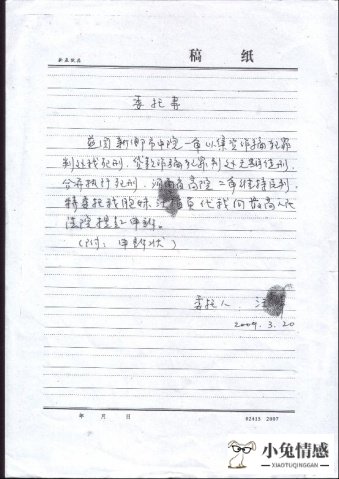 稿 纸
委托书
兹因新乡市中院一审以集资诈骗犯罪
判处我死刑，贷款诈骗犯罪判处无期徒刑，
合并执行死刑，河南省高院二审维持原判，
特委托我胞妹 代我向最高人民
法院提起申诉。
（附：申诉状）
委托人：汪
2009.3.20
年 月 日
02415 2007
小兔情感
XIAOTUQINGGAN